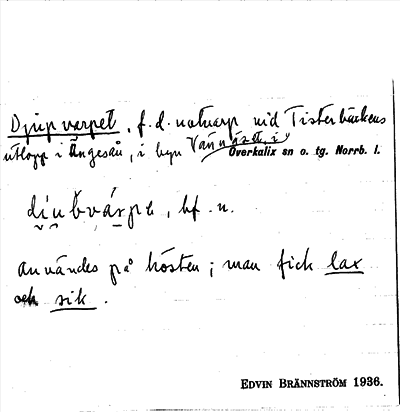 Djupvarpet, f. d. notvarp vid Tisterbäckens
utlopp i Ängesån, i byn Vännäset, i
Överkalix sn o. tg. Norrb. l.
di̯u̯b̆várpe, bf. n.
användes på hösten; man fick lax
och sik.
EDVIN BRÄNNSTRÖM 1936.